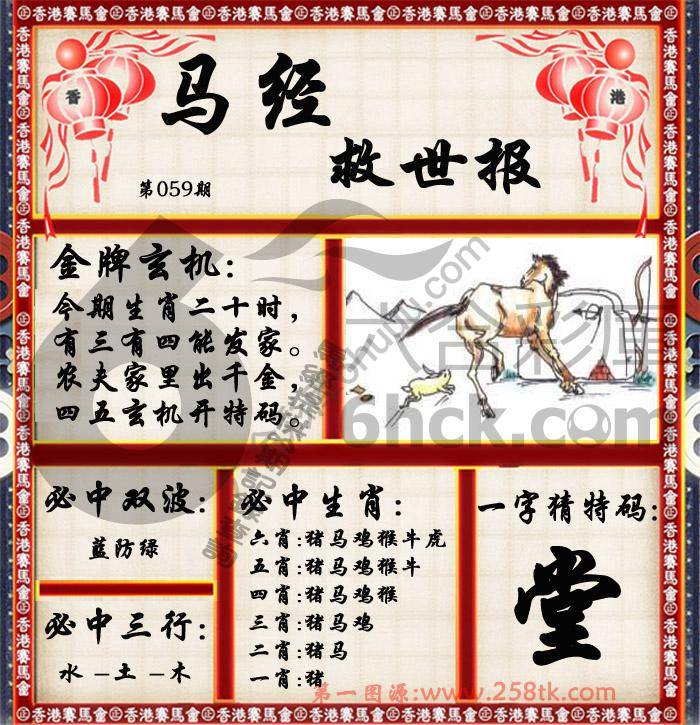 香港賽馬會
香
港
马经
救世报
第059期
金牌玄机:
今期生肖二十时,
有三有四能发家。
农夫家里出千金,
四五玄机开特码。
六合彩
6hck.com
必中双波:
蓝防绿
必中三行:
水-土-木
必中生肖:
六肖:猪马鸡猴牛虎
五肖:猪马鸡猴牛
四肖:猪马鸡猴
三肖:猪马鸡
二肖:猪马
一肖:猪
一字猜特码:
堂
第一图源:www.258tk.com